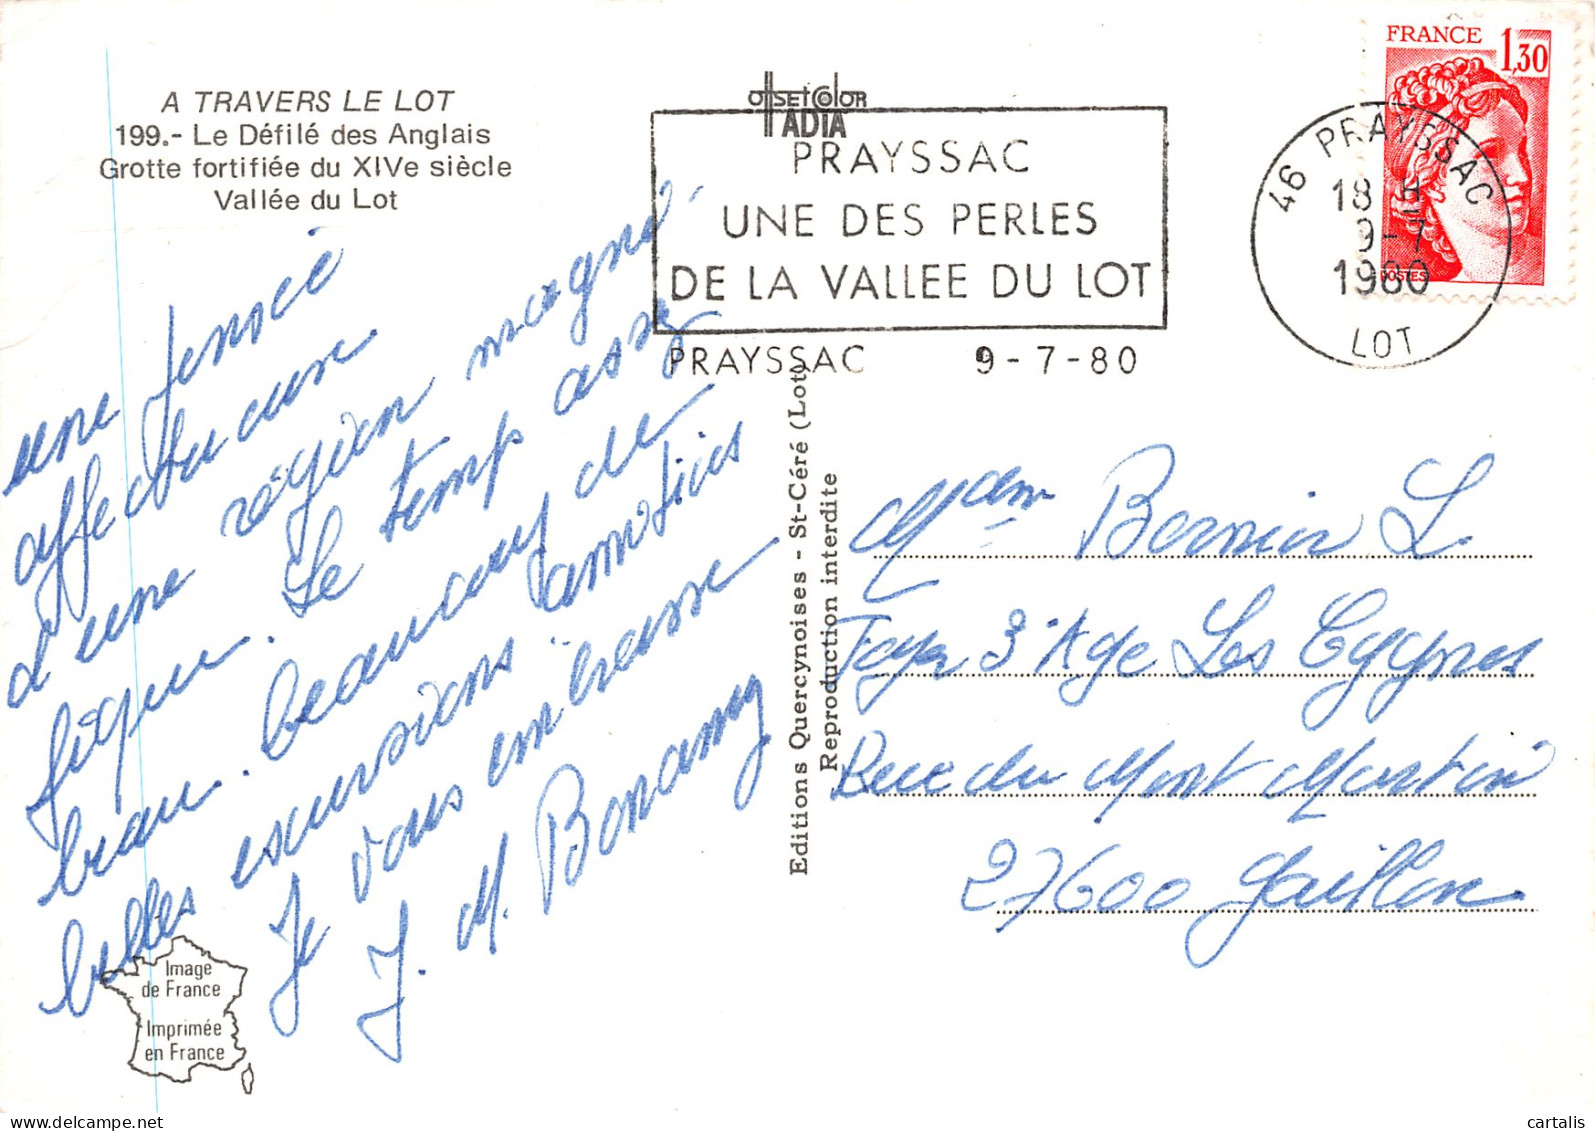 A TRAVERS LE LOT
199.- Le Défilé des Anglais
Grotte fortifiée du XIVe siècle
Vallée du Lot
OffSET COLOR
ADIA
PRAYSSAC
UNE DES PERLES
DE LA VALLEE DU LOT
PRAYSSAC 9-7-80
FRANCE 1,30
POSTES
46 PRAYSSAC
18 H
9-7
1980
LOT
une pensée
affectueuse
d'une région magni
fique. Le temps assez
beau. beaucoup de
belles excursions amitiés
Je vous embrasse
J. M. Bonamy
Editions Quercynoises - St-Céré (Lot)
Reproduction interdite
Mdam Bernier L.
Foyer 3' Age Les Cygnes
Rue du Mont Martin
27600 Gaillon
Image
de France
Imprimée
en France
cartalis
delcampe.net